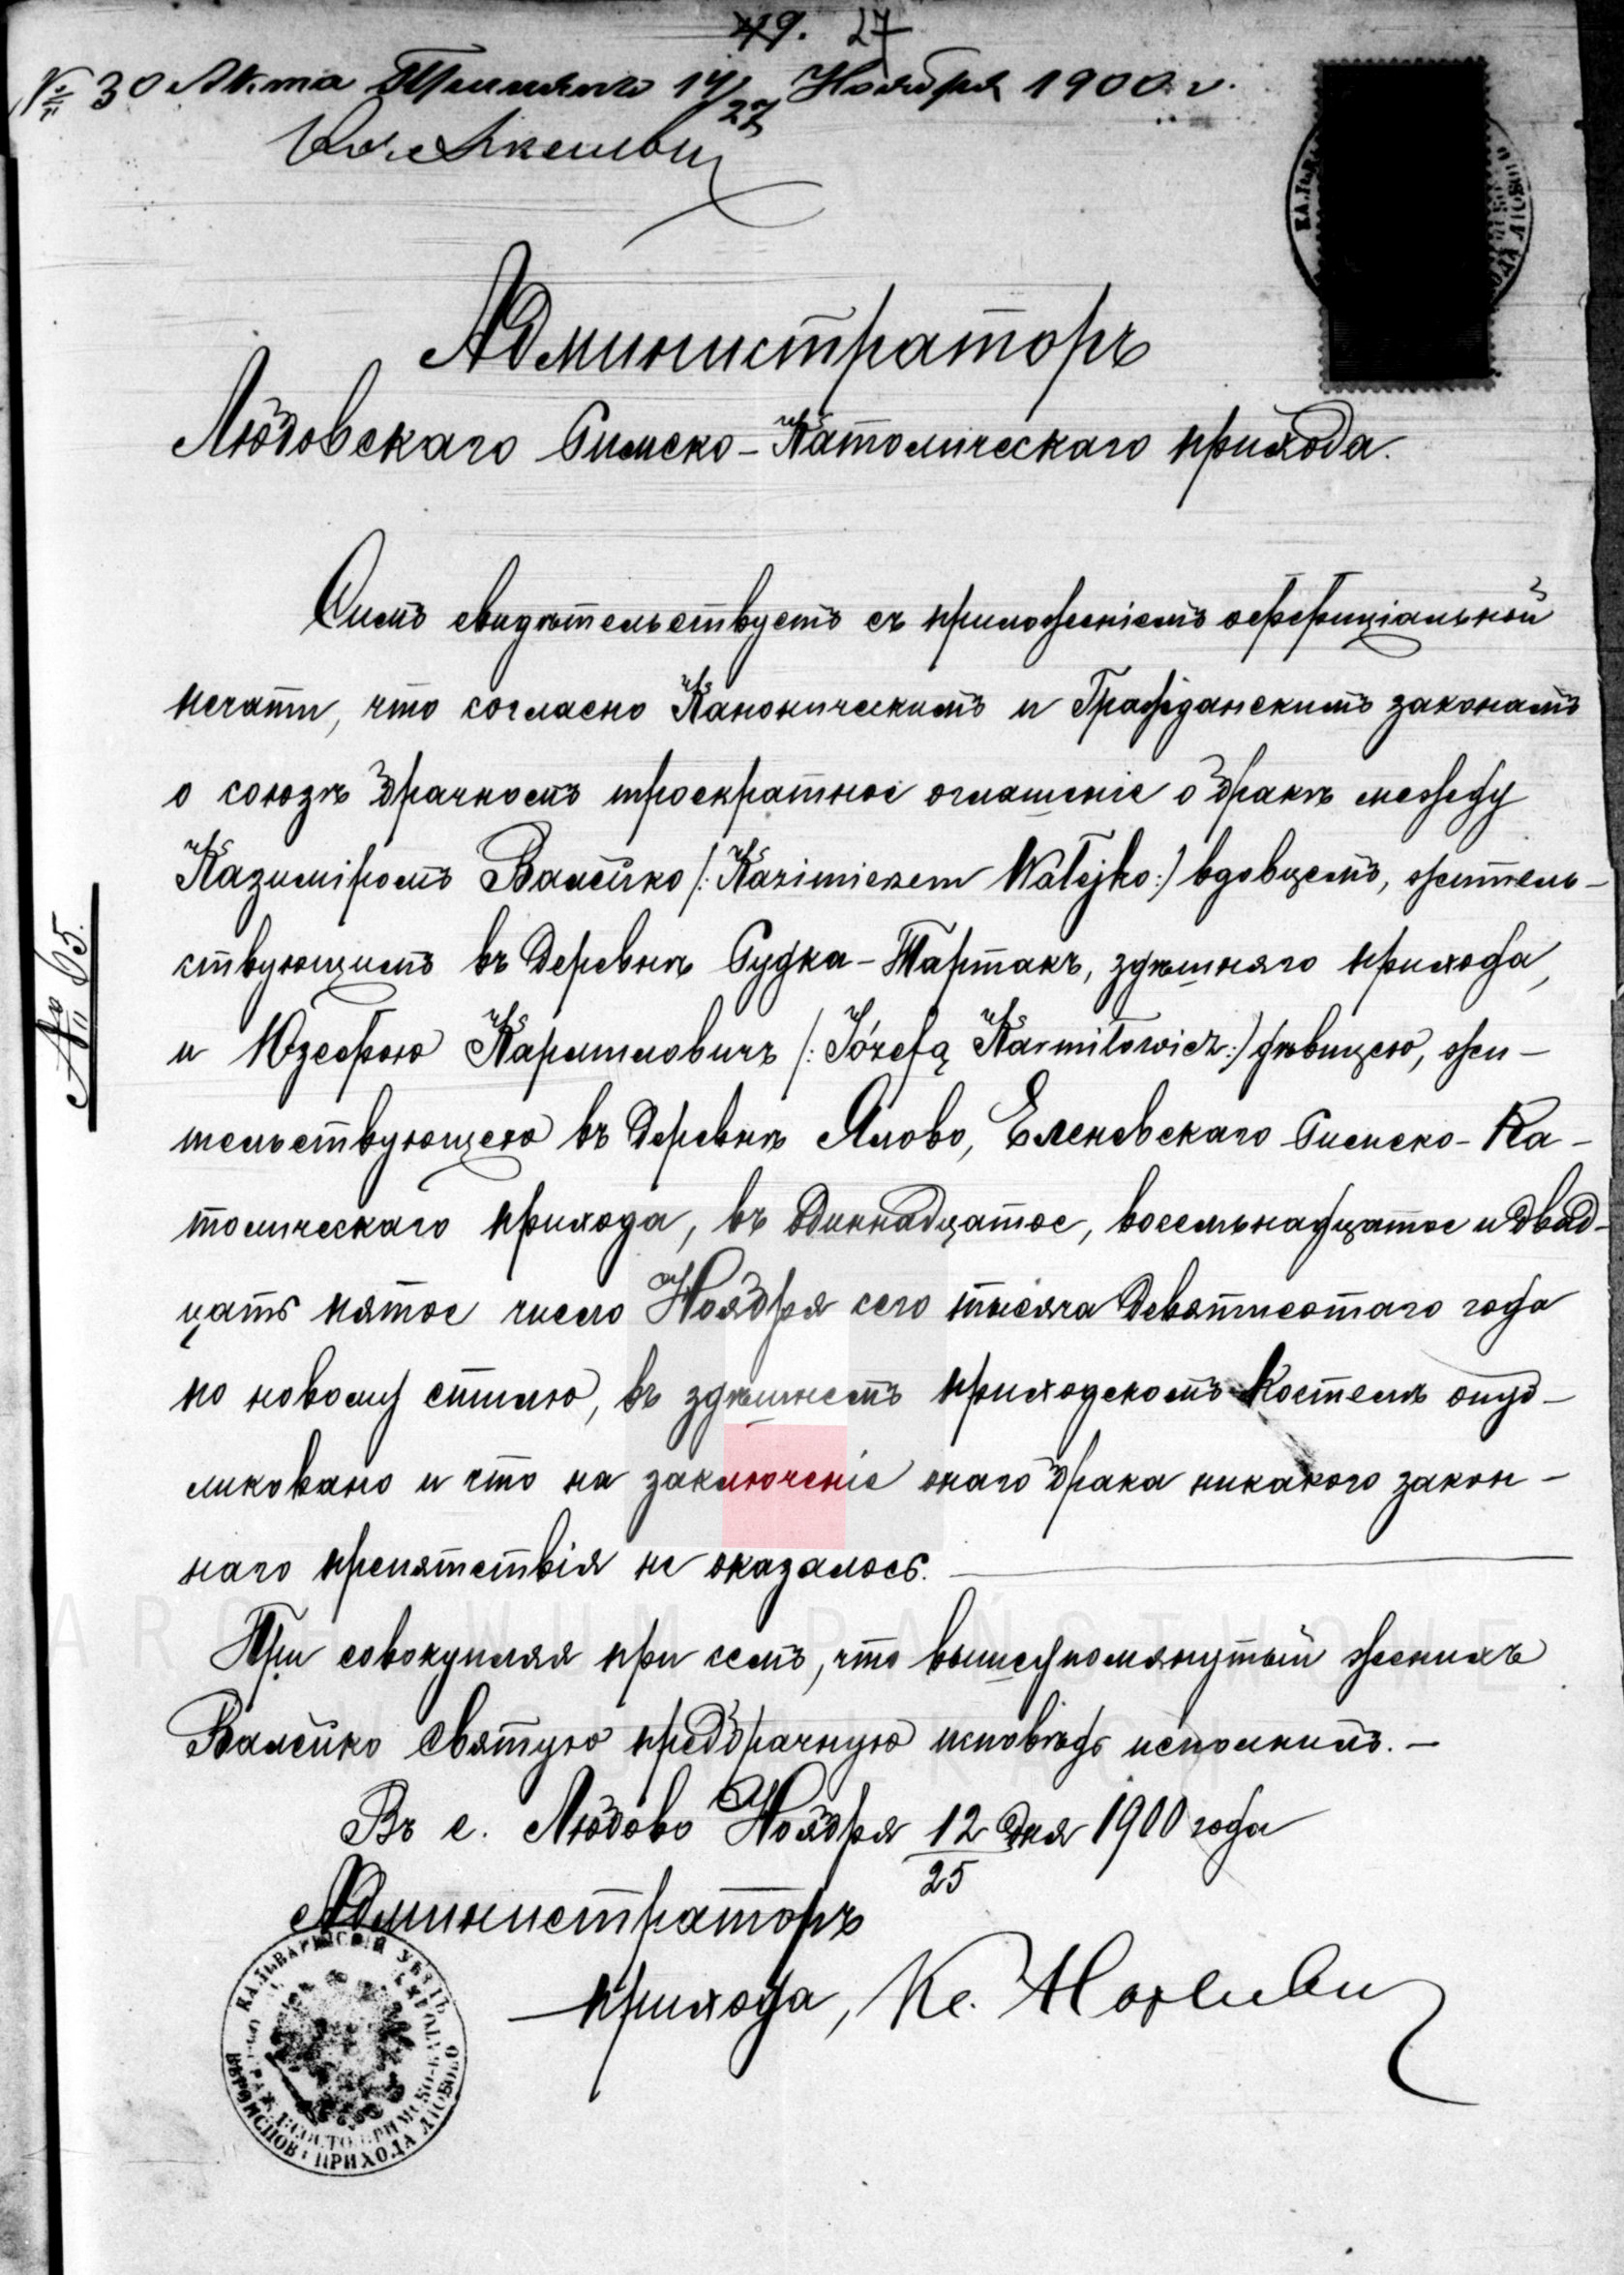 49. 27
№ 30 Акта 14/27 Ноября 1900 г.
Администраторъ
Любовскаго Римско-Католическаго прихода.
Симъ свидѣтельствуетъ съ приложеніемъ оффиціальной
печати, что согласно Каноническимъ и Гражданскимъ законамъ
о союзѣ брачномъ троекратное оглашеніе о бракѣ между
Казиміромъ Валейко /: Kazimierzem Walejko:/ вдовцемъ, житель-
ствующимъ въ деревнѣ Рудка-Тартакъ, здѣшняго прихода,
и Юзефою Кармиловичъ /: Józefą Karmiłowicz:/ дѣвицею, жи-
тельствующею въ деревнѣ Ялово, Еленевскаго Римско-Ка-
толическаго прихода, въ одиннадцатое, восемьнадцатое и двад-
цать пятое число Ноября сего тысяча девятисотаго года
по новому стилю, въ здѣшнемъ приходскомъ Костелѣ опуб-
ликовано и что на заключеніе онаго брака никакого закон-
наго препятствія не оказалось.
При совокупляя при семъ, что вышеупомянутый женихъ
Валейко Святую предбрачную исповѣдь исполнилъ. —
Въ с. Любово Ноября 12/25 дня 1900 года
Администраторъ
прихода, Кс.
№ 65.
КАЛЬВАРІЙСКІЙ УѢЗДЪ
ПРИХОДА ЛЮБОВО
ARCHIWUM PAŃSTWOWE
W SUWAŁKACH